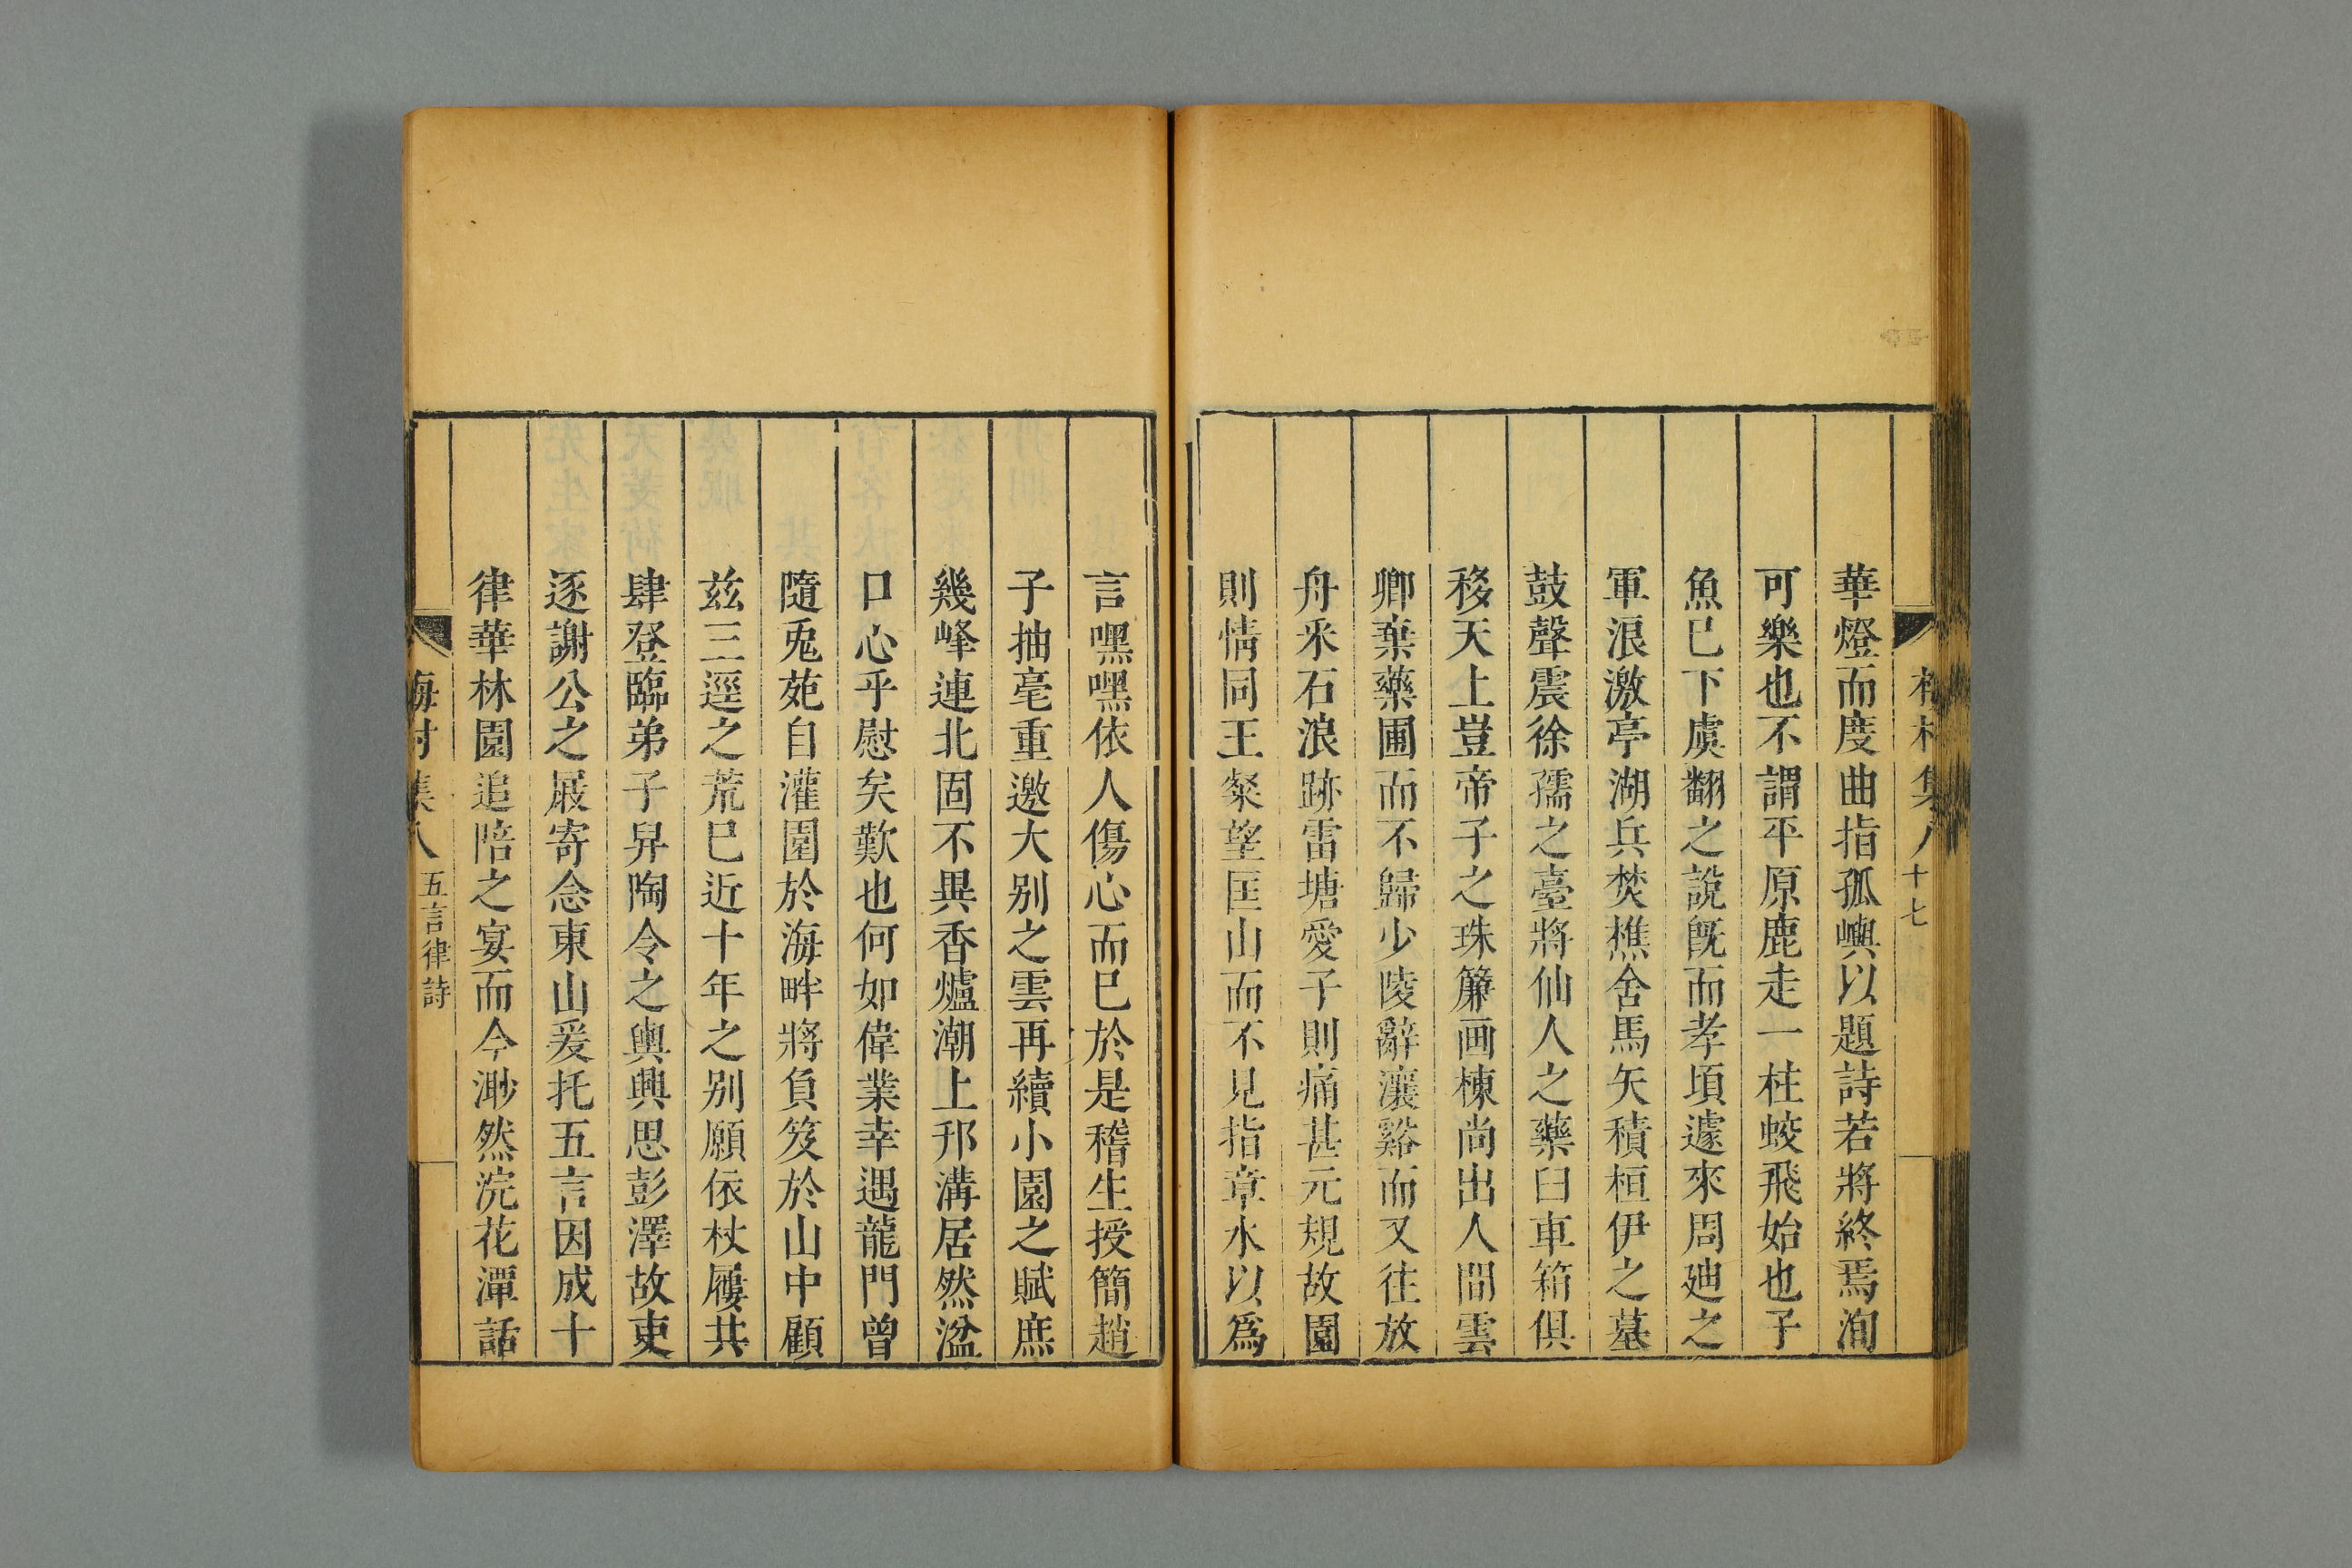 梅村集八 十七
華燈而度曲指孤嶼以題詩若將終焉洵
可樂也不謂平原鹿走一柱蛟飛始也子
魚已下虞翻之說旣而孝頃遽來周廸之
軍浪激亭湖兵焚樵舍馬矢積桓伊之墓
鼓聲震徐孺之臺將仙人之藥臼車箱俱
移天上豈帝子之珠簾画棟尚出人間雲
卿棄藥圃而不歸少陵辭瀼谿而又往放
舟釆石浪跡雷塘愛子則痛甚元規故園
則情同王粲望匡山而不見指章水以爲
言嘿嘿依人傷心而已於是稽生授簡趙
子抽毫重邀大別之雲再續小園之賦庶
幾峰連北固不異香爐潮上邗溝居然湓
口心乎慰矣歎也何如偉業幸遇龍門曾
隨兎苑自灌園於海畔將負笈於山中顧
茲三逕之荒已近十年之別願依杖屨共
肆登臨弟子舁陶令之輿興思彭澤故吏
逐謝公之屐寄念東山爰托五言因成十
律華林園追陪之宴而今渺然浣花潭話
梅村集八 五言律詩